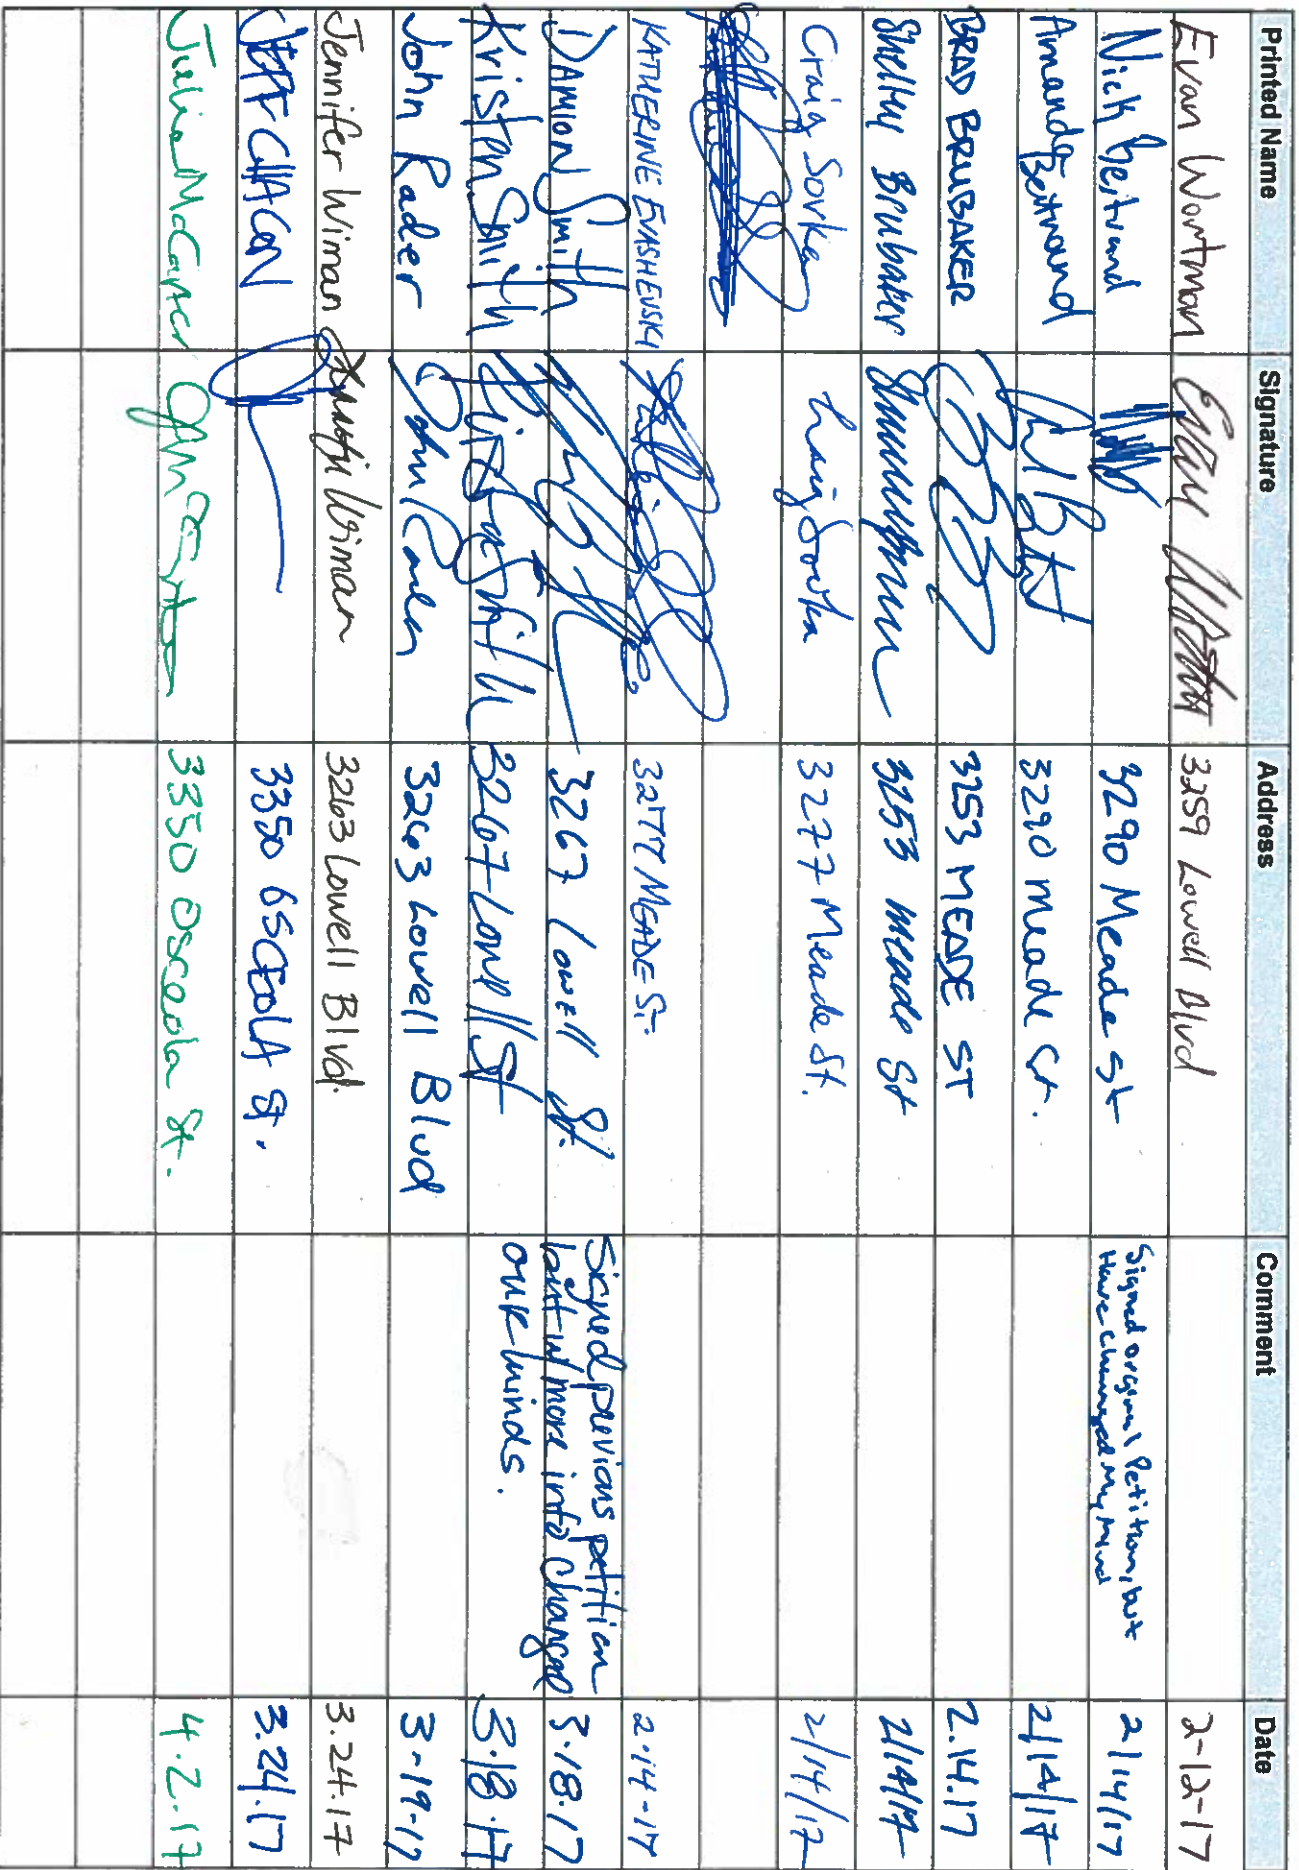 Printed Name Signature Address Comment Date
Evan Wortman 3259 Lowell Blvd 2-12-17
Nick Beitrand 3290 Meade St Signed original Petition, but
Have changed my mind 2/14/17
Amanda Beitrand 3290 Meade St. 2/14/17
BRAD BRUBAKER 3253 MEADE ST 2.14.17
Shelly Brubaker 3253 Meade St 2/14/17
Craig Sovka Craig Sovka 3277 Meade St. 2/14/17
KATHERINE EVASHEVSKI 3277 MEADE ST. 2-14-17
DAMION Smith 3267 Lowell St. Signed previous petition
but w/ more info changed
our minds. 3.18.17
Kristen Smith Kristen Smith 3267 Lowell St 3.18.17
John Rader John Rader 3263 Lowell Blvd 3-19-17
Jennifer Wiman Jennifer Wiman 3263 Lowell Blvd. 3.24.17
JEFF CHACON 3350 OSCEOLA St. 3.24.17
Julie 3350 Osceola St. 4.2.17